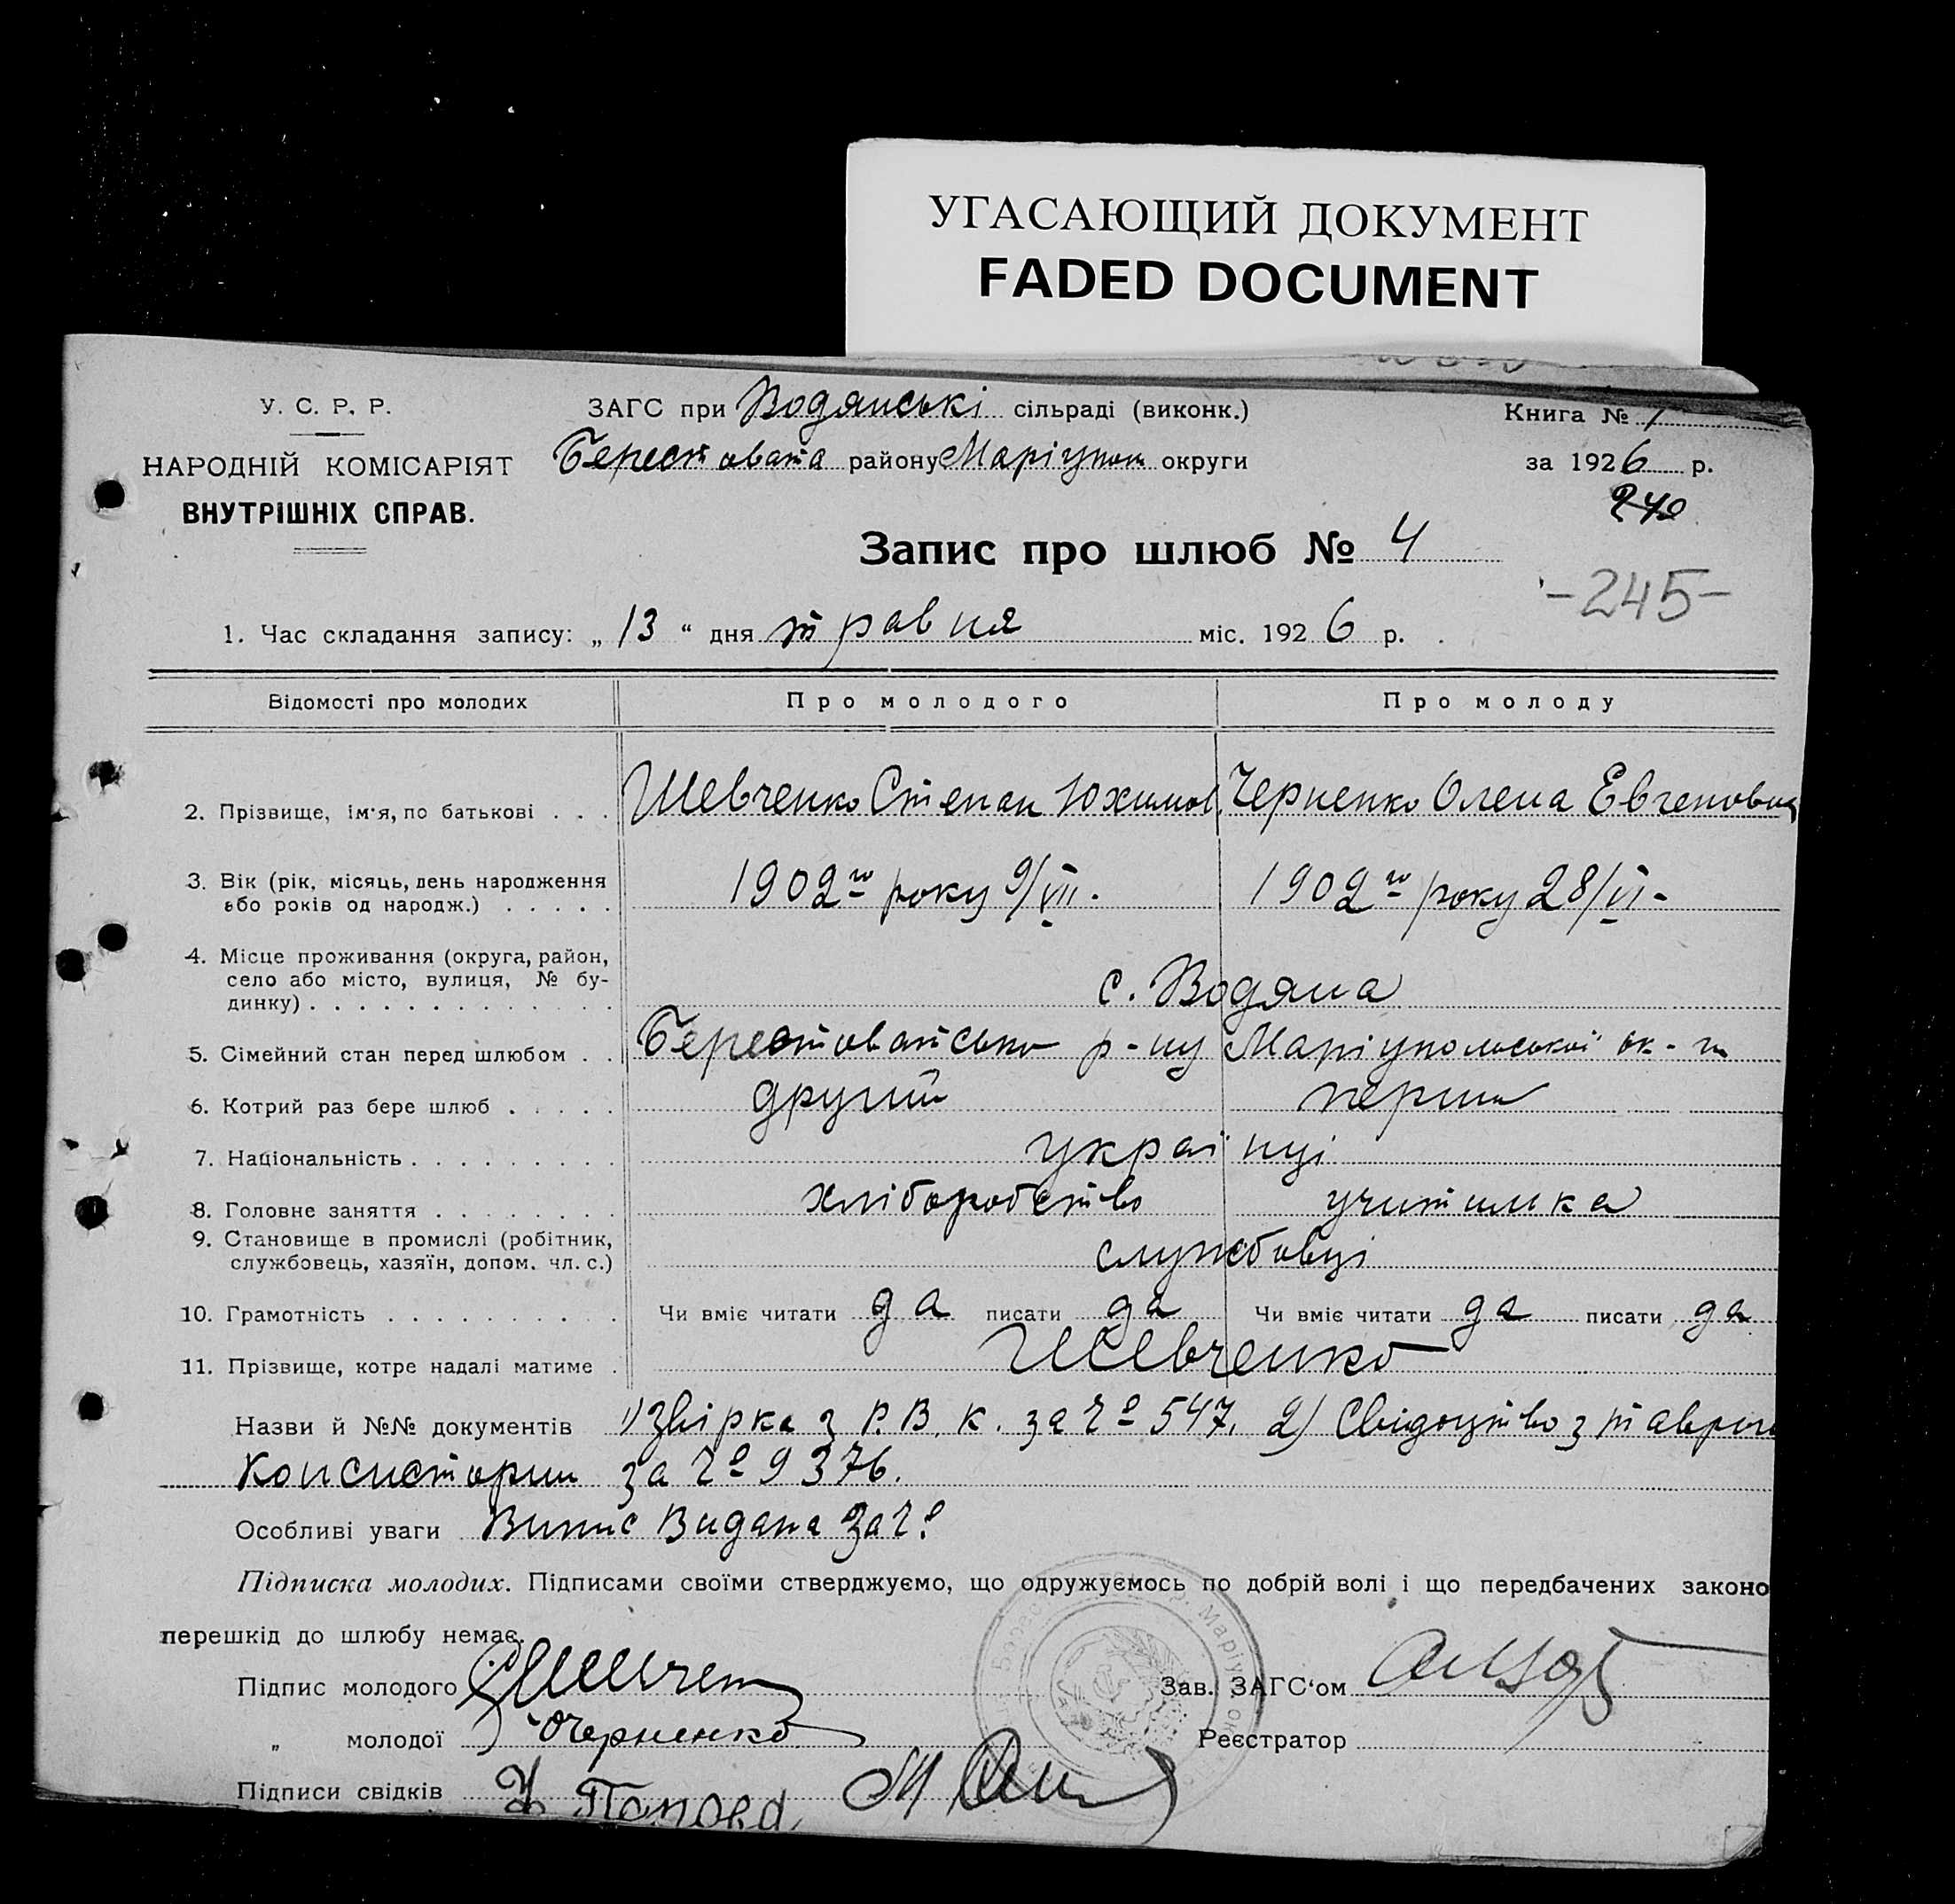 УГАСАЮЩИЙ ДОКУМЕНТ
FADED DOCUMENT
У. С. Р. Р.
НАРОДНІЙ КОМІСАРІЯТ
ВНУТРІШНІХ СПРАВ.
ЗАГС при Водянські сільраді (виконк.)
Берестовата району Маріупол округи
Книга № 1
за 1926 р.
240
Запис про шлюб № 4
-245-
1. Час складання запису: „ 13 “ дня травня міс. 1926 р.
Відомості про молодих Про молодого Про молоду
2. Прізвище, ім'я, по батькові . . . Шевченко Степан Юхимов. Черненко Олена Евгеновна
3. Вік (рік, місяць, день народження або років од народж.) . . . . . 1902го року 9/VII. 1902го року 28/VI-
4. Місце проживання (округа, район, село або місто, вулиця, № будинку) . . . . . с. Водяна
5. Сімейний стан перед шлюбом . . Берестоватсько р-ну Маріупольської ок-ги
6. Котрий раз бере шлюб . . . . . другий перший
7. Національність . . . . . . . . . українці
8. Головне заняття . . . . . . . . хліборобство учителка
9. Становище в промислі (робітник, службовець, хазяїн, допом. чл. с.) службовці
10. Грамотність . . . . . . . . . . Чи вміє читати да писати да Чи вміє читати да писати да
11. Прізвище, котре надалі матиме . Шевченко
Назви й №№ документів 1) Звірка з Р.В.К. за № 547. 2) Свідоцтво з
Консистории за № 9376.
Особливі уваги Випис Видана За №
Підписка молодих. Підписами своїми стверджуємо, що одружуємось по добрій волі і що передбачених законо
перешкід до шлюбу немає.
Підпис молодого
Зав. ЗАГС'ом
„ молодої Черненко
Реєстратор
Підписи свідків Попова